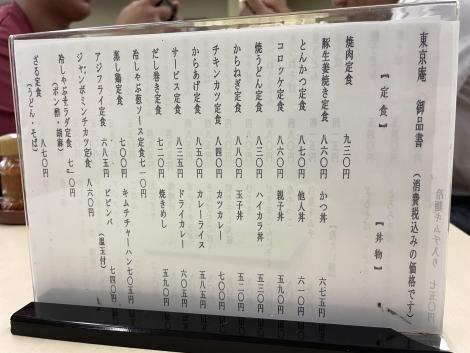 東京庵 御品書 (消費税込みの価格です)
『定食』 『丼物』
焼肉定食 九三〇円
豚生姜焼き定食 八六〇円 かつ丼 六七五円
とんかつ定食 八七〇円 他人丼 六一〇円
コロッケ定食 八六〇円 親子丼 五九〇円
焼うどん定食 八三〇円 ハイカラ丼 五三〇円
からねぎ定食 八八〇円 玉子丼 五二〇円
チキンカツ定食 八四〇円 カツカレー 七〇〇円
からあげ定食 八五〇円 カレーライス 五八五円
サービス定食 八三五円 ドライカレー 六〇五円
だし巻き定食 七二〇円 焼きめし 五九〇円
冷しゃぶ葱ソース定食 七一〇円
蒸し鶏定食 七〇〇円 キムチチャーハン 七〇五円
アジフライ定食 六八五円 ビビンバ (温玉付) 七四〇円
ジャンボミンチカツ定食 八六〇円
冷しゃぶサラダ定食
(ポン酢・胡麻)
ざる定食 八七〇円
(うどん・そば)